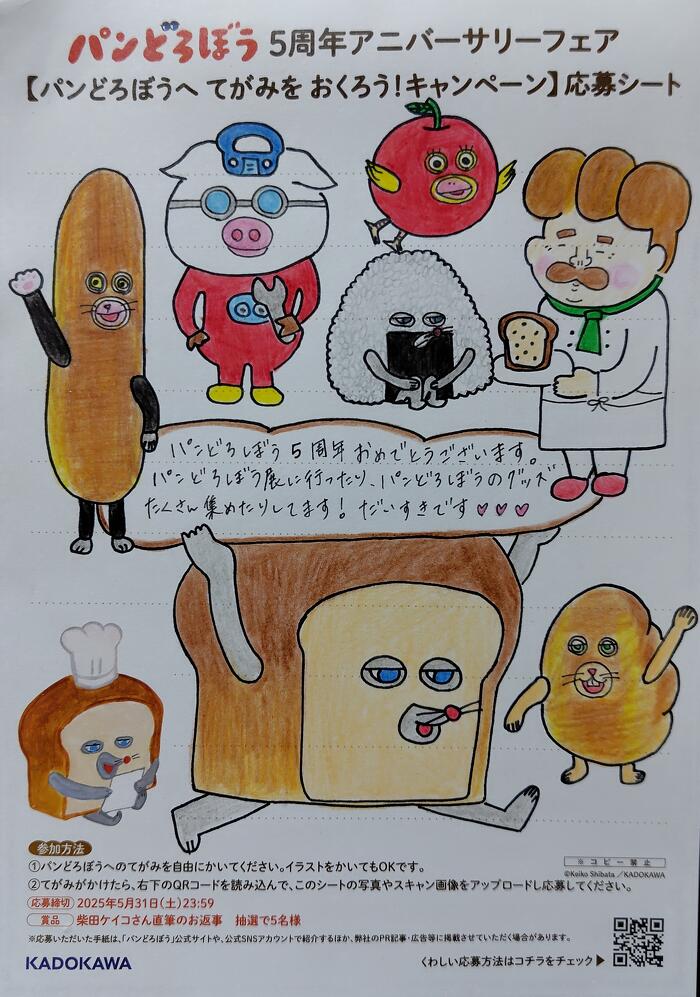 パンどろぼう 5周年アニバーサリーフェア
【パンどろぼうへ てがみを おくろう!キャンペーン】応募シート
パンどろぼう 5周年おめでとうございます。
パンどろぼう展に行ったり、パンどろぼうのグッズ
たくさん集めたりしてます! だいすきです♡♡♡
参加方法
①パンどろぼうへのてがみを自由にかいてください。イラストをかいてもOKです。
※コピー禁止
©Keiko Shibata/KADOKAWA
②てがみがかけたら、右下のQRコードを読み込んで、このシートの写真やスキャン画像をアップロードし応募してください。
応募締切 2025年5月31日(土)23:59
賞品 柴田ケイコさん直筆のお返事 抽選で5名様
※応募いただいた手紙は、「パンどろぼう」公式サイトや、公式SNSアカウントで紹介するほか、弊社のPR記事・広告等に掲載させていただく場合があります。
KADOKAWA
くわしい応募方法はコチラをチェック▶